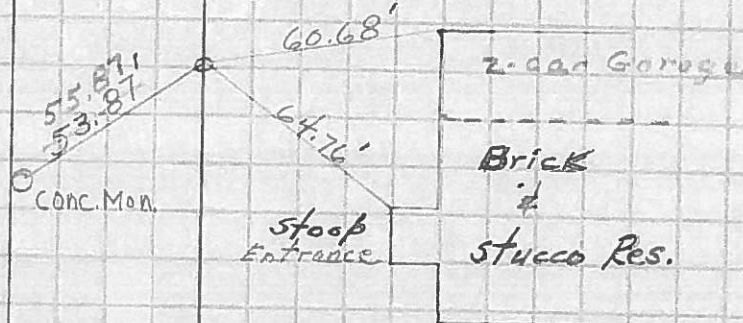 60.68'
2-car Garage
55.87'
53.87
64.76'
Conc. Mon.
Brick
&
Stucco Res.
Stoop
Entrance